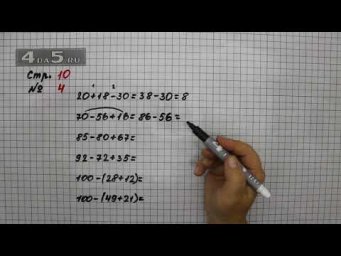 4DA5.RU
Стр. 10
№ 4
1 2
20+18-30=38-30=8
70-56+16=86-56=
85-80+67=
92-72+35=
100-(28+12)=
100-(49+21)=